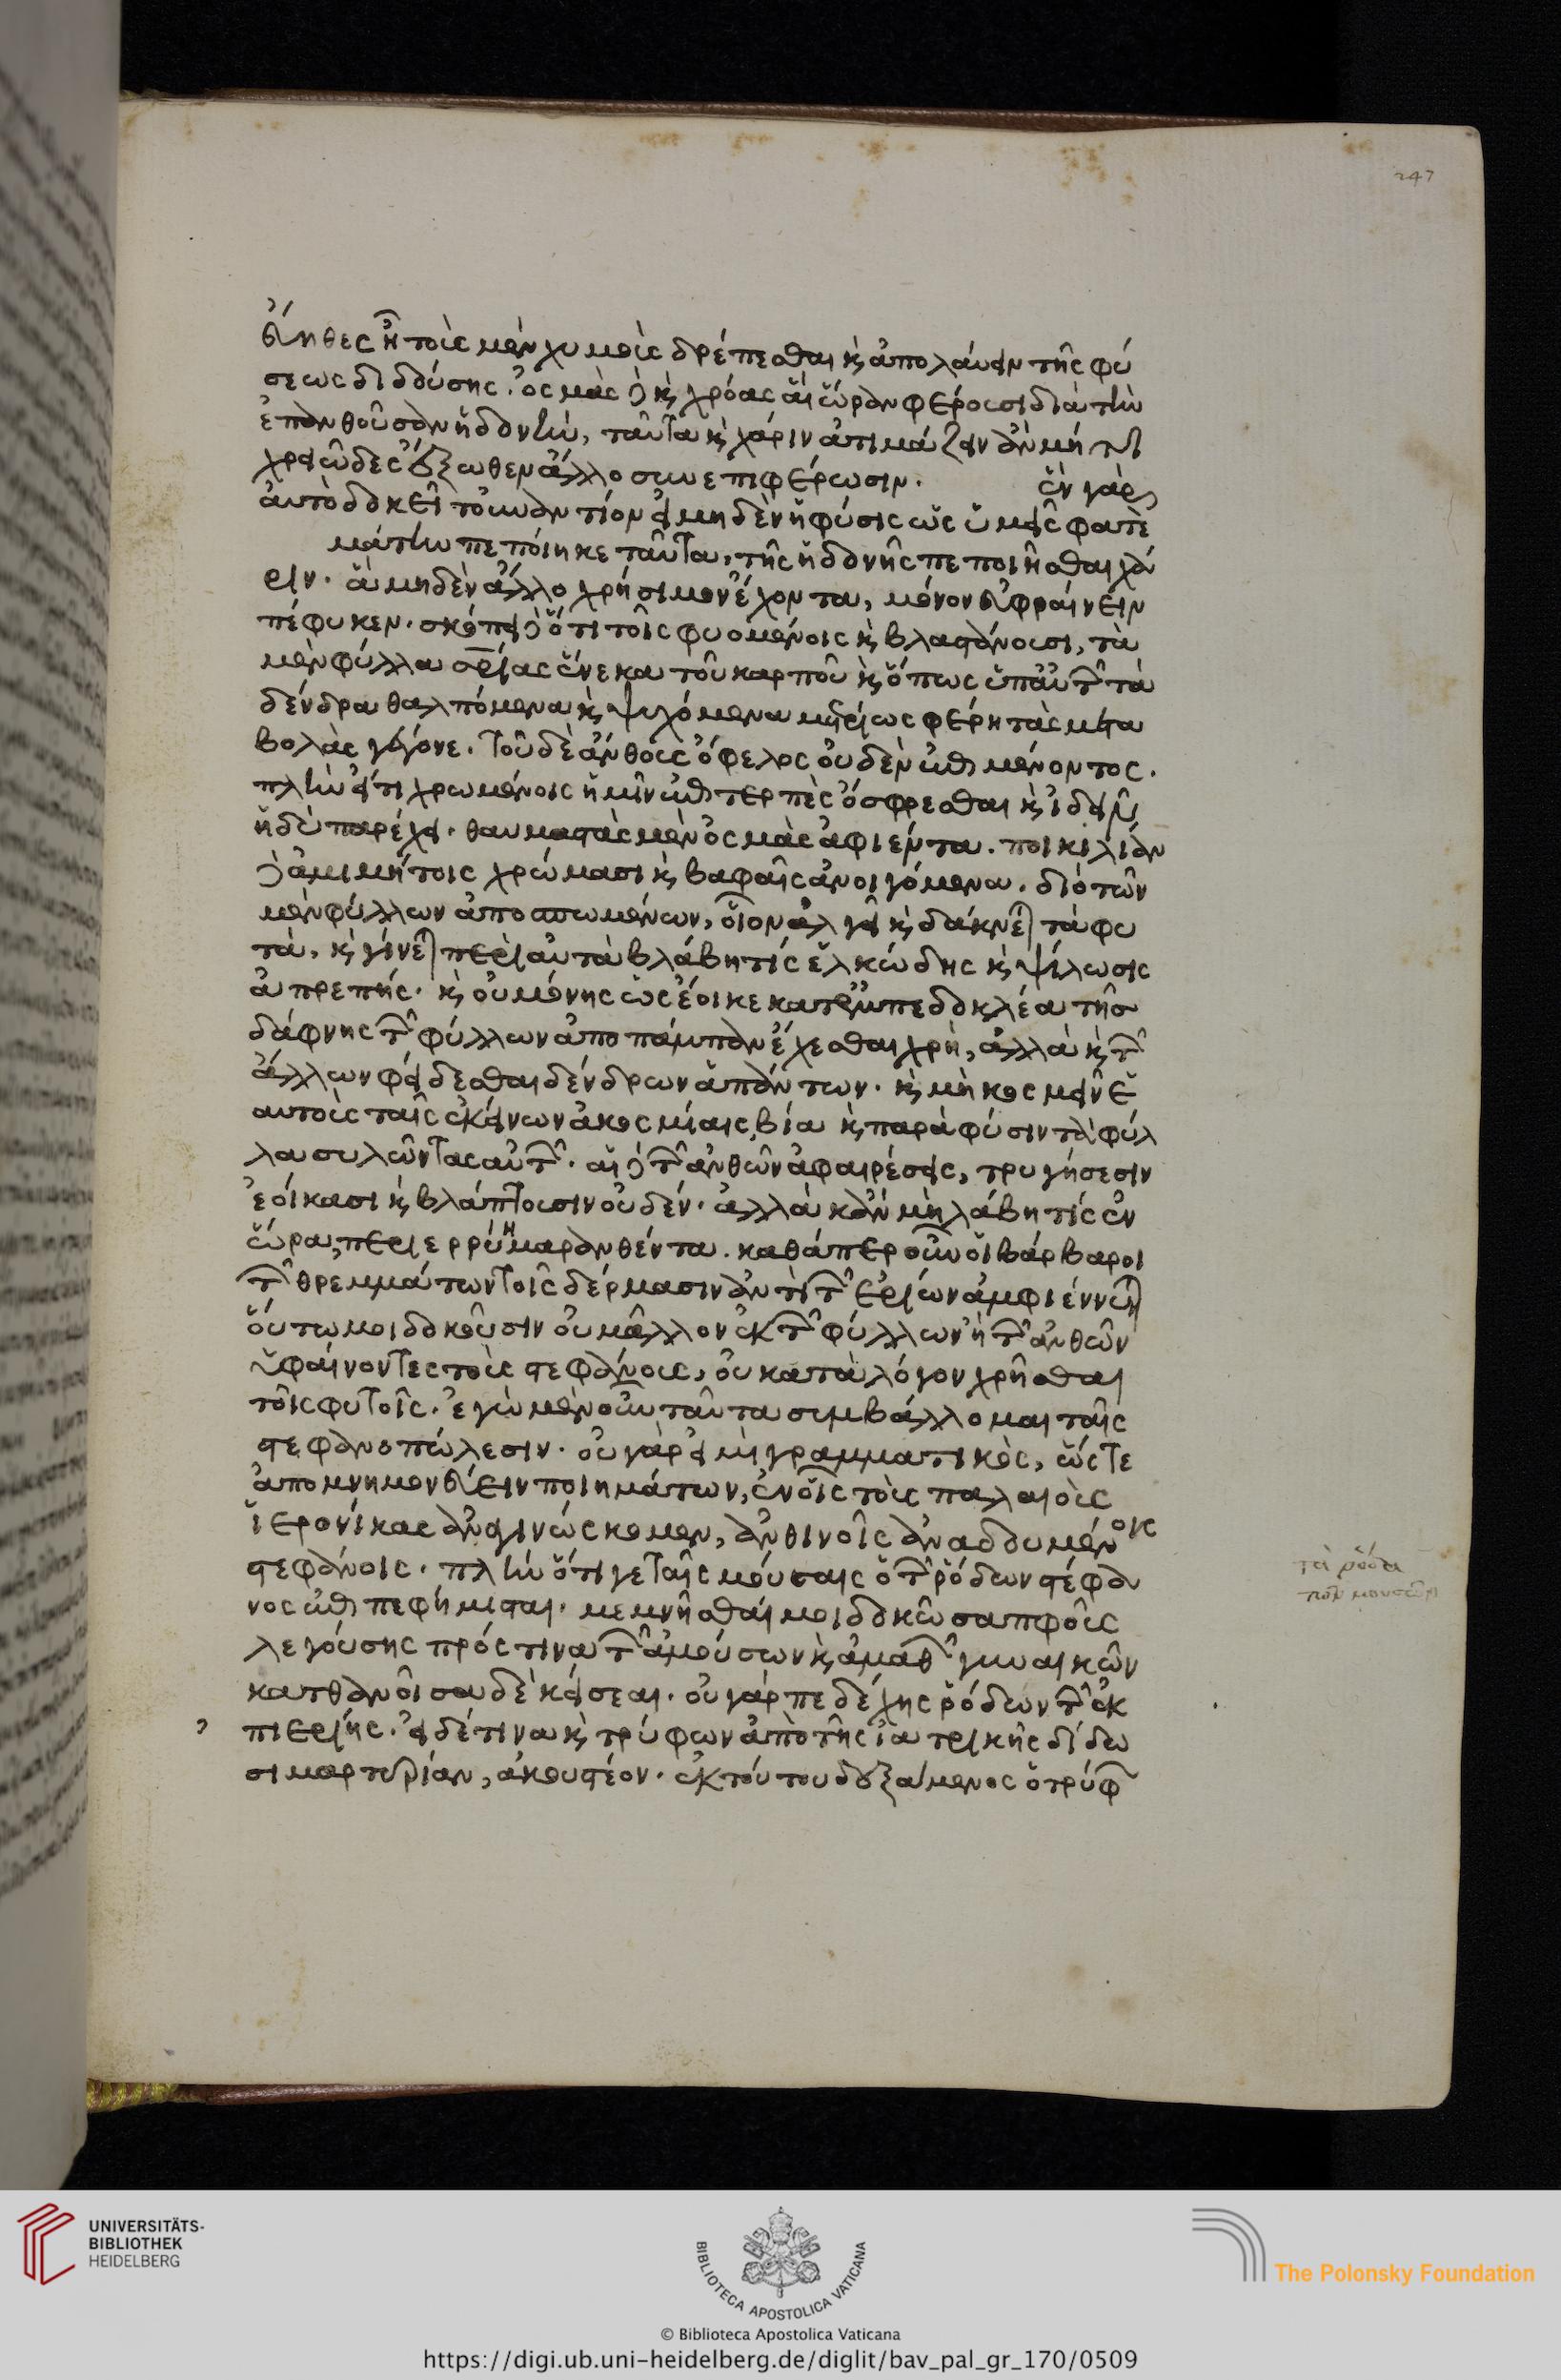 247
εὔηθες ἦ τοὺς μὲν χυμοὺς δρέπεσθαι κ̀ ἀπολαύειν τῆς φύ
σεως διδούσης. ὀσμὰς δὲ κ̀ χρόας ἃς αἱ ὧραι φέρουσι διὰ τὴν
ἐπανθοῦσαν ἡδονὴν, ταῦτα κ̀ χάριν ἀτιμάζειν ἂν μή τι
χρειῶδες ἔξωθεν ἄλλο συνεπιφέρωσιν. ἓν γὰρ
αὐτὸ δοκεῖ τοὐναντίον εἰ μηδὲν ἡ φύσις ὡς ὑμεῖς φατὲ
μάτην πεποίηκε ταῦτα, τῆς ἡδονῆς πεποιῆσθαι χά
ριν. ἃ μηδὲν ἄλλο χρήσιμον ἔχοντα, μόνον εὐφραίνειν
πέφυκεν. σκόπει δὲ ὅτι τοῖς φυομένοις κ̀ βλαστάνουσι, τὰ
μὲν φύλλα σωτηρίας ἕνεκα τοῦ καρποῦ κ̀ ὅπως ὑπ' αὐτῶν τὰ
δένδρα θαλπόμενα κ̀ ψυχόμενα μετρίως φέρῃ τὰς μετα
βολὰς γέγονε. τοῦ δὲ ἄνθους ὄφελος οὐδὲν ἐπιμένοντος.
πλὴν εἴ τι χρωμένοις ἡμῖν ἐπιτερπὲς ὀσφρέσθαι κ̀ ἰδεῖν
ἡδὺ παρέχει. θαυμαστὰς μὲν ὀσμὰς ἀφιέντα. ποικιλίαν
δὲ ἀμιμήτοις χρώμασι κ̀ βαφαῖς ἀνοιγόμενα. διὸ τῶν
μὲν φύλλων ἀποσπωμένων, οἷον ἀλγεῖ κ̀ δάκνεται τὰ φυ
τὰ, κ̀ γίνεται περὶ αὐτὰ βλάβη τίς ἑλκώδης κ̀ ψίλωσις
ἀπρεπής. κ̀ οὐ μόνης ὡς ἔοικε κατ' ἐμπεδοκλέα τῆς
δάφνης τῶν φύλλων ἀπὸ πάμπαν ἔχεσθαι χρὴ, ἀλλὰ κ̀ τῶν
ἄλλων φείδεσθαι δένδρων ἁπάντων. κ̀ μὴ κοσμεῖν ἑ
αυτοὺς ταῖς ἐκείνων ἀκοσμίαις, βία κ̀ παρὰ φύσιν τὰ φύλ
λα συλῶντας αὐτῶν. αἱ δὲ τῶν ἀνθῶν ἀφαιρέσεις, τρυγήσεσιν
ἐοίκασι κ̀ βλάπτουσιν οὐδέν. ἀλλὰ κἂν μὴ λάβῃ τίς ἐν
ὥρα, περιερρύη μαρανθέντα. καθάπερ οὖν οἱ βάρβαροι
τῶν θρεμμάτων τοῖς δέρμασιν ἀντὶ τῶν ἐρίων ἀμφιέννυνται
οὕτω μοι δοκοῦσιν οὐ μᾶλλον ἐκ τῶν φύλλων ἢ τῶν ἀνθῶν
ὑφαίνοντες τοὺς στεφάνους, οὐ κατὰ λόγον χρῆσθαι
τοῖς φυτοῖς. ἐγὼ μὲν οὖν ταῦτα συμβάλλομαι ταῖς
στεφανοπώλεσιν. οὐ γάρ εἰμι γραμματικὸς, ὥστε
ἀπομνημονεύειν ποιημάτων, ἐν οἷς τοὺς παλαιοὺς
ἱερονίκας ἀναγινώσκομεν, ἀνθινοῖς ἀναδουμένους
στεφάνοις. πλὴν ὅτι γε ταῖς μούσαις ὁ τῶν ῥόδων στέφα
νος ἐπιπεφήμισται. μεμνῆσθαί μοι δοκῶ σαπφοῦς
λεγούσης πρός τινα τῶν ἀμούσων κ̀ ἀμαθῶν γυναικῶν
κατθανοῖσα δὲ κείσεαι. οὐ γὰρ πεδέχης ῥόδων τῶν ἐκ
πιερίης. εἰ δέ τινα κ̀ τρύφων ἀπὸ τῆς ἰατρικῆς δίδω
σι μαρτυρίαν, ἀκουστέον. ἐκ τούτου δεξάμενος ὁ τρύφων
τὰ ῥόδα
τῶν μουσῶν
UNIVERSITÄTS-
BIBLIOTHEK
HEIDELBERG
BIBLIOTECA APOSTOLICA VATICANA
The Polonsky Foundation
© Biblioteca Apostolica Vaticana
https://digi.ub.uni-heidelberg.de/diglit/bav_pal_gr_170/0509